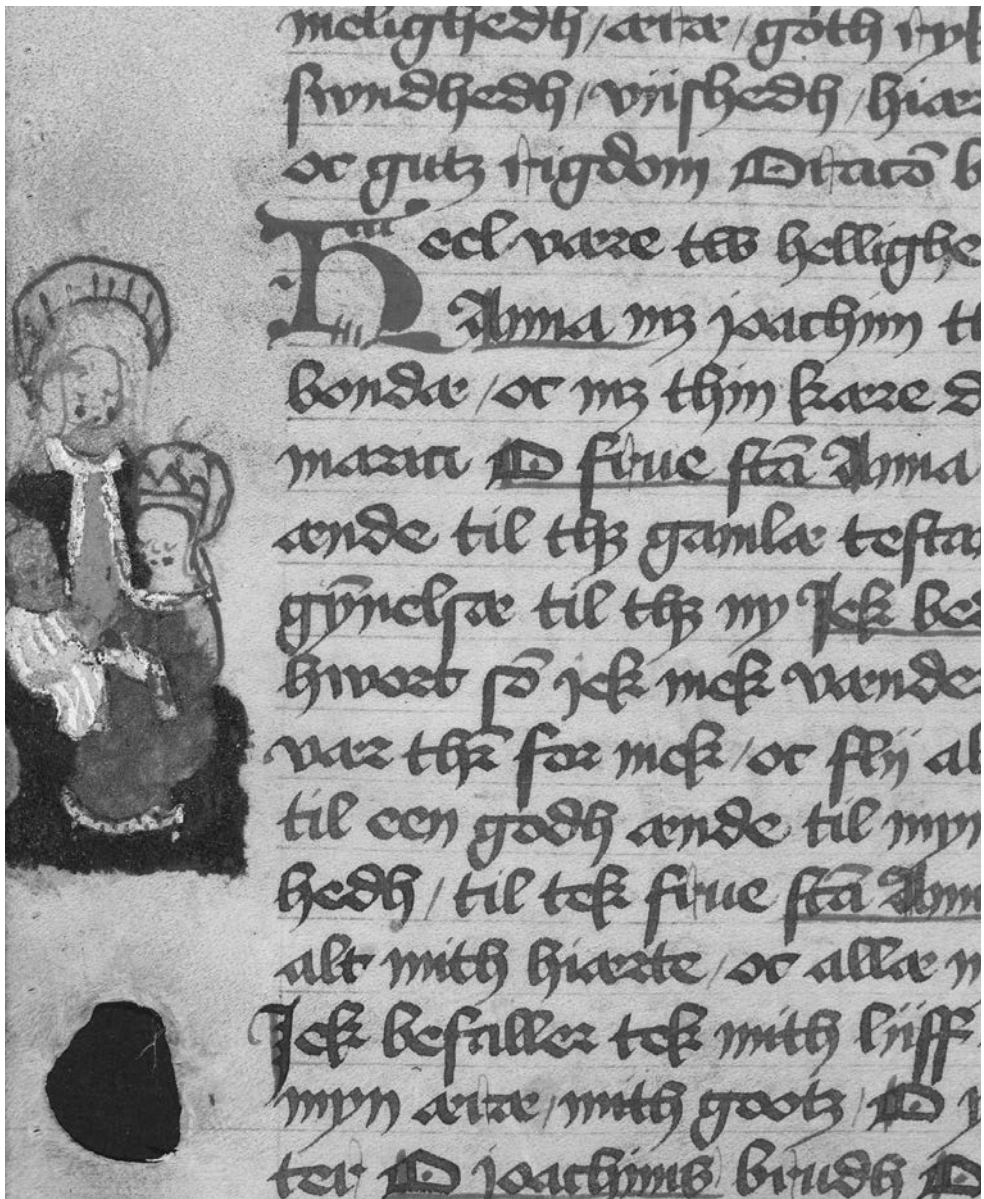 melighedh / æræ / goth ryk
swndhedh / viishedh / hiær
oc gutz rigdom Oracō b
Heel være tw hellighe
Anna mz joachim th
bondæ / oc mz thin kære d
maria O frue stā Anna
ænde til thz gamlæ testa
gȳnelsæ til thz ny Jek bed
hwort sō jek mek vænder
vær thr̄ for mek / oc flij al
til een godh ænde til myn
hedh / til tek frue stā Ann
alt mith hiærte / oc allæ m
Jek befaller tek mith liiff
myn æræ / mith gootz / O
ter O joachims brudh O